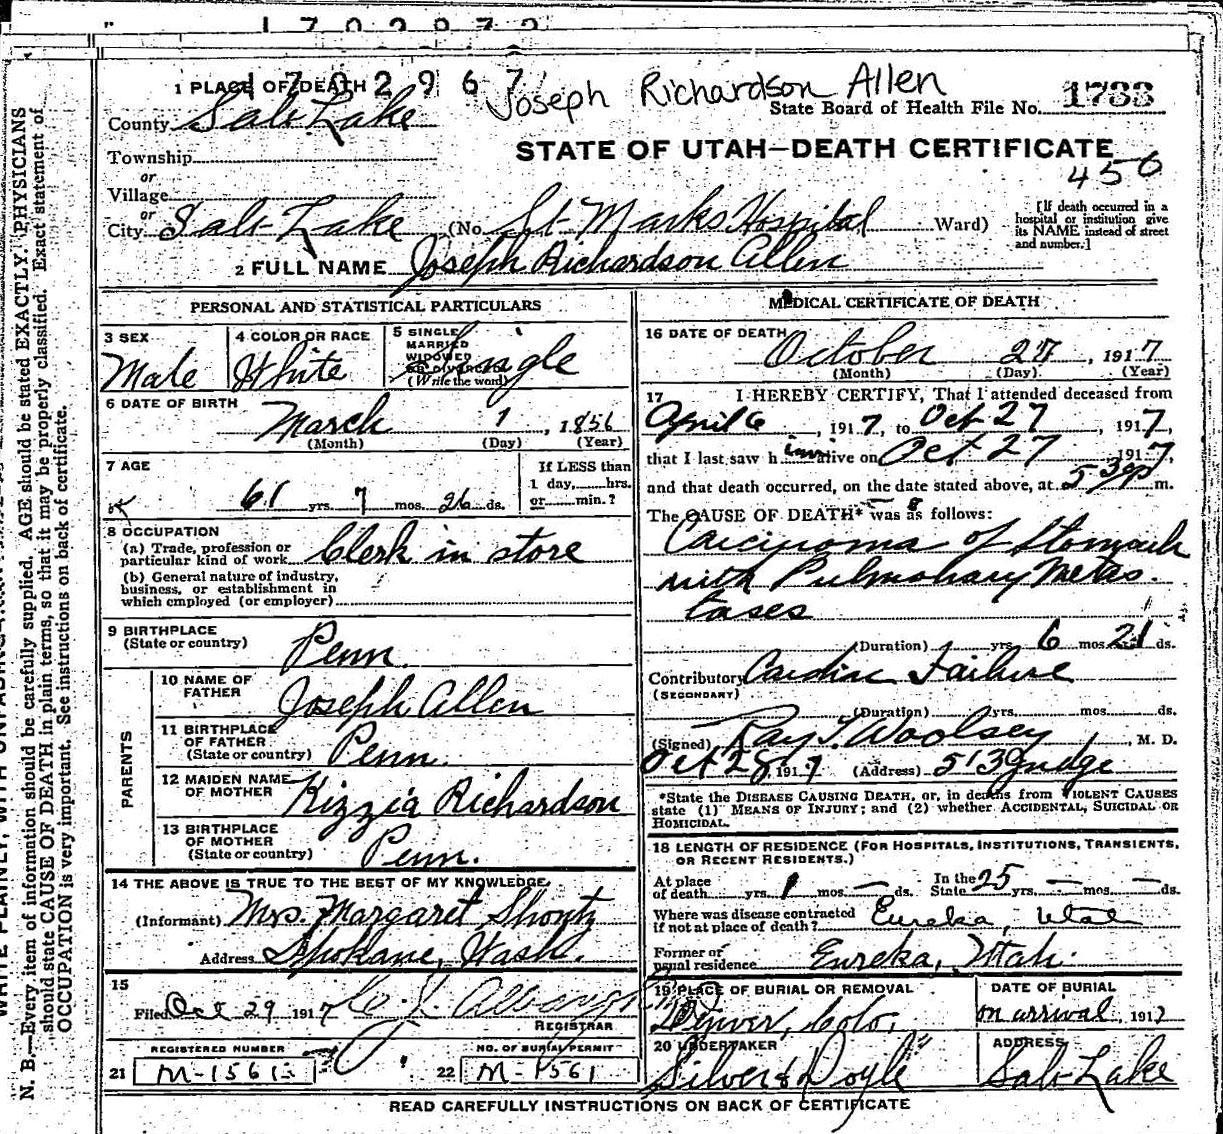 1702973
1702967
Joseph Richardson Allen
1 PLACE OF DEATH
State Board of Health File No. 1733
County Salt Lake
STATE OF UTAH—DEATH CERTIFICATE
Township
450
or
Village
or
City Salt Lake (No. St. Marks Hospital Ward)
[If death occurred in a hospital or institution give its NAME instead of street and number.]
2 FULL NAME Joseph Richardson Allen
PERSONAL AND STATISTICAL PARTICULARS
3 SEX Male
4 COLOR OR RACE White
5 SINGLE MARRIED WIDOWED OR DIVORCED (Write the word) Single
6 DATE OF BIRTH March 1, 1856
(Month) (Day) (Year)
7 AGE
61 yrs. 7 mos. 26 ds.
If LESS than 1 day, hrs. or min.?
8 OCCUPATION
(a) Trade, profession or particular kind of work Clerk in store
(b) General nature of industry, business, or establishment in which employed (or employer)
9 BIRTHPLACE (State or country) Penn.
PARENTS
10 NAME OF FATHER Joseph Allen
11 BIRTHPLACE OF FATHER (State or country) Penn.
12 MAIDEN NAME OF MOTHER Kizzia Richardson
13 BIRTHPLACE OF MOTHER (State or country) Penn.
14 THE ABOVE IS TRUE TO THE BEST OF MY KNOWLEDGE
(Informant) Mrs. Margaret Shontz
Address Spokane, Wash.
15
Filed Oct 29 1917
REGISTRAR
REGISTERED NUMBER
21 M-1561
NO. OF BURIAL PERMIT
22 M-1561
MEDICAL CERTIFICATE OF DEATH
16 DATE OF DEATH
October 27, 1917
(Month) (Day) (Year)
17 I HEREBY CERTIFY, That I attended deceased from
April 6, 1917, to Oct 27, 1917,
that I last saw him alive on Oct 27 1917,
and that death occurred, on the date stated above, at 5 30 p m.
The CAUSE OF DEATH* was as follows:
Carcinoma of Stomach
with Pulmonary Metas-
tases
(Duration) yrs. 6 mos. 21 ds.
Contributory Cardiac Failure
(SECONDARY)
(Duration) yrs. mos. ds.
(Signed) Ray T. Woolsey, M. D.
Oct 28 1917 (Address) 513 Judge
*State the DISEASE CAUSING DEATH, or, in deaths from VIOLENT CAUSES
state (1) MEANS OF INJURY; and (2) whether ACCIDENTAL, SUICIDAL OR
HOMICIDAL.
18 LENGTH OF RESIDENCE (FOR HOSPITALS, INSTITUTIONS, TRANSIENTS,
OR RECENT RESIDENTS.)
At place of death yrs. 1 mos. — ds. In the State 25 yrs. — mos. — ds.
Where was disease contracted if not at place of death? Eureka, Utah
Former or usual residence Eureka, Utah.
19 PLACE OF BURIAL OR REMOVAL
Denver, Colo,
DATE OF BURIAL
on arrival, 1917
20 UNDERTAKER
Silver & Doyle
ADDRESS
Salt Lake
READ CAREFULLY INSTRUCTIONS ON BACK OF CERTIFICATE
WRITE PLAINLY, WITH UNFADING
N. B.—Every item of information should be carefully supplied. AGE should be stated EXACTLY. PHYSICIANS
should state CAUSE OF DEATH in plain terms, so that it may be properly classified. Exact statement of
OCCUPATION is very important. See instructions on back of certificate.